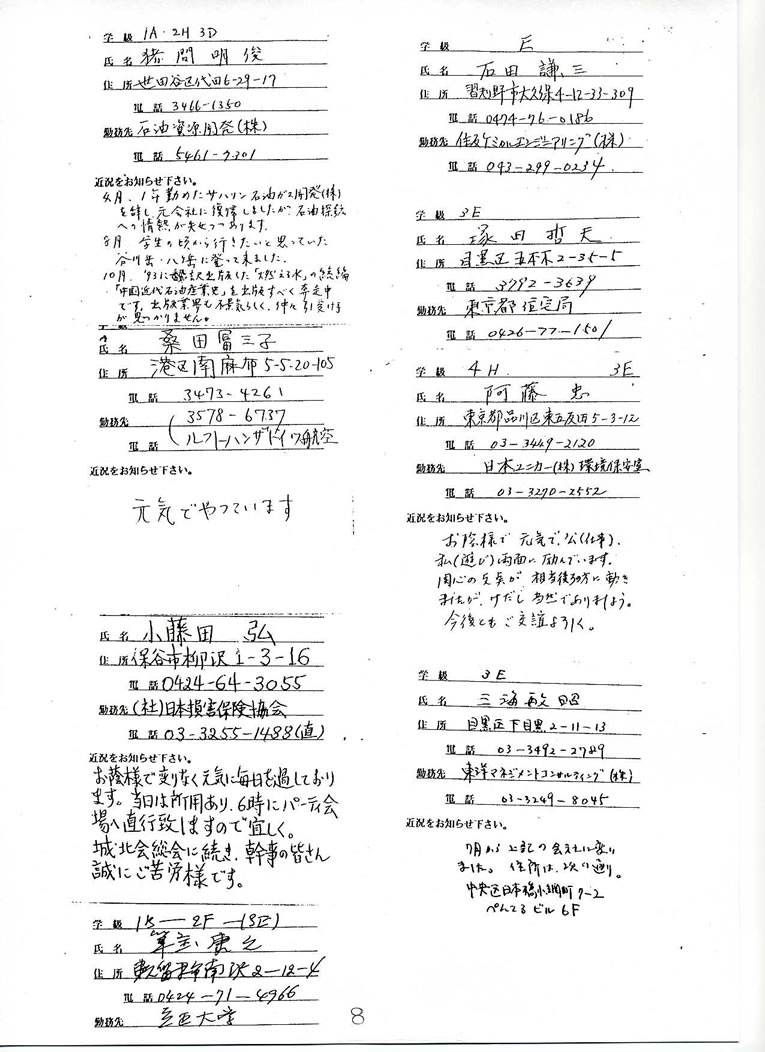 学級 1A・2H 3D
氏名 猪間明俊
住所 世田谷区代田6-29-17
電話 3466-1350
勤務先 石油資源開発(株)
電話 5461-7301
近況をお知らせ下さい。
4月、1年勤めたサハリン石油ガス開発(株)
を辞し元会社に復帰しましたが、石油探鉱
への情熱が失せつつあります。
8月 学生の頃から行きたいと思っていた
谷川岳・八ヶ岳に登って来ました。
10月、'93に翻訳出版した「燃える水」の続編
「中国近代石油産業史」を出版すべく奔走中
です。出版業界も不景気らしく、仲々引受け手
が見つかりません。
氏名 桑田冨三子
住所 港区南麻布5-5-20-105
電話 3473-4261
勤務先 3578-6737
電話 ルフトハンザドイツ航空
近況をお知らせ下さい。
元気でやっています
氏名 小藤田 弘
住所 保谷市柳沢1-3-16
電話 0424-64-3055
勤務先 (社)日本損害保険協会
電話 03-3255-1488(直)
近況をお知らせ下さい。
お蔭様で変りなく元気に毎日を過しており
ます。当日は所用あり、6時にパーティ会
場へ直行致しますので宜しく。
城北会総会に続き、幹事の皆さん
誠にご苦労様です。
学級 1S-2F-(3E)
氏名
住所 東久留米市南沢2-12-4
電話 0424-71-4966
勤務先 立正大学
学級 E
氏名 石田謙三
住所 習志野市大久保4-12-33-309
電話 0474-76-0186
勤務先 住友ケミカルエンジニアリング(株)
電話 043-299-0234
学級 3E
氏名 塚田哲夫
住所 目黒区五本木2-35-5
電話 3792-3639
勤務先 東京都住宅局
電話 0426-77-1501
学級 4H. 3E
氏名 阿藤 忠
住所 東京都品川区東五反田5-3-12
電話 03-3449-2120
勤務先 日本ユニカー(株)環境保安室
電話 03-3270-2552
近況をお知らせ下さい。
お陰様で元気で、公(仕事)、
私(遊び)両面に励んでいます。
関心の支点が相当後者方に動き
ましたが、けだし当然でありましょう。
今後ともご交誼よろしく。
学級 3E
氏名 三海敏昭
住所 目黒区下目黒2-11-13
電話 03-3492-2789
勤務先 東洋マネジメントコンサルティング(株)
電話 03-3249-8045
近況をお知らせ下さい。
7月から上記の会社に変り
ました。住所は、次の通り。
中央区日本橋小網町7-2
ぺんてるビル6F
8